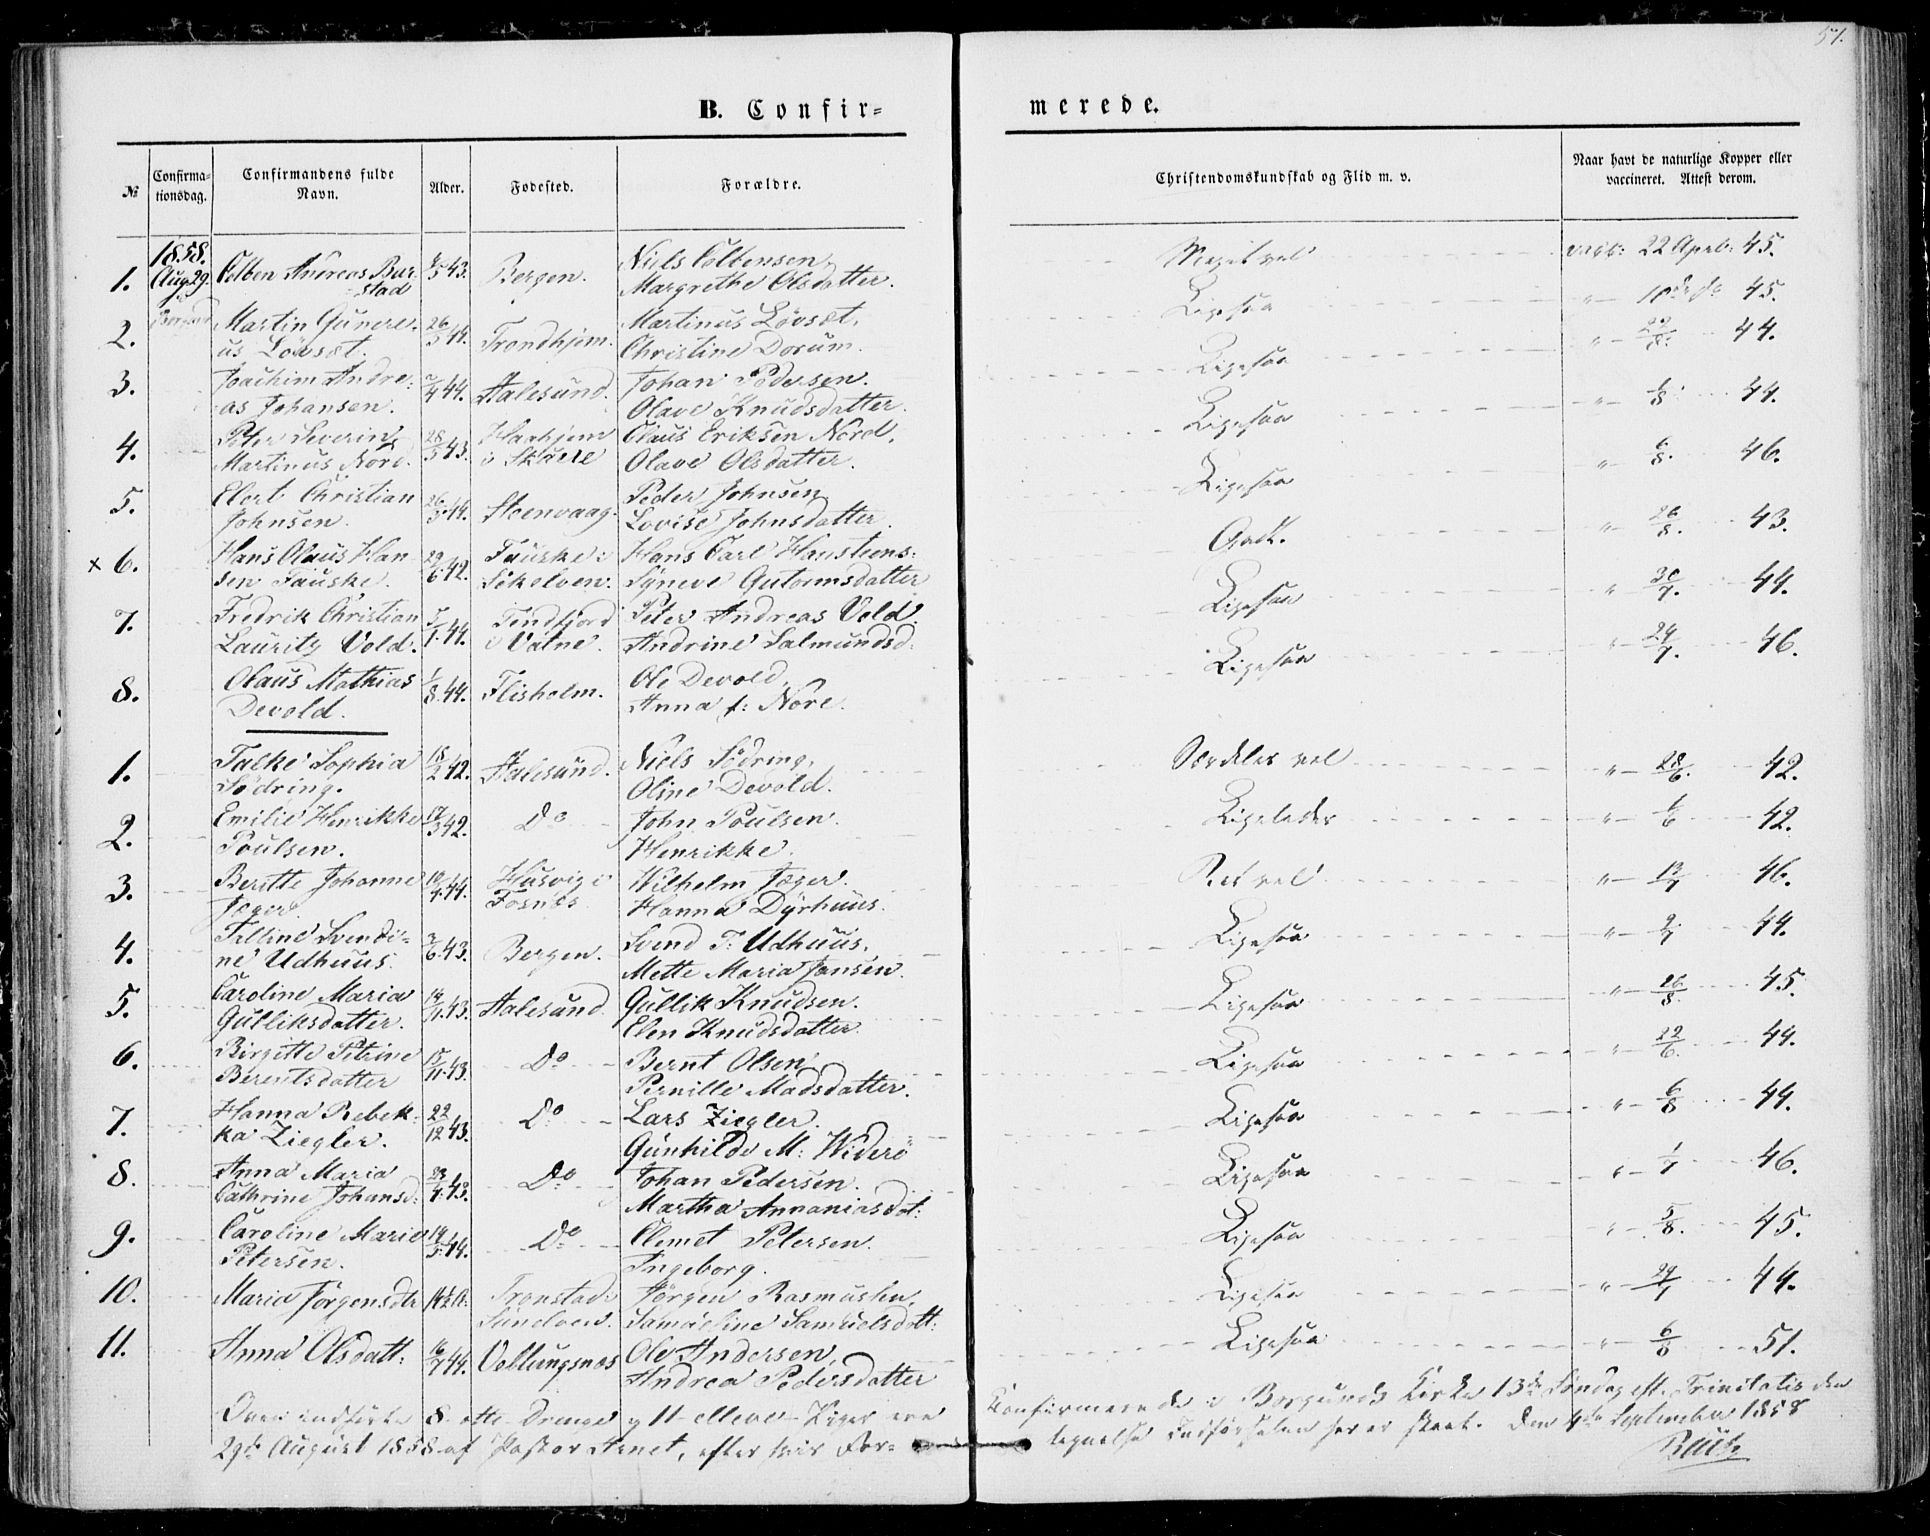 57.
B. Confir=
merede.
№
Confirma=
tionsdag.
Confirmandens fulde
Navn.
Alder.
Fødested.
Forældre.
Christendomskundskab og Flid m. v.
Naar havt de naturlige Kopper eller
vaccineret. Attest derom.
1858.
1. Aug. 29. Colben Andreas Bur-
stad
43. Bergen. Niels Colbensen,
Margrethe Olsdatter.
Meget vel 22 April 45.
2. Martin Gunere-
us Løvset.
26/5 44. Trondhjem. Martinus Løvset,
Christine Dorum.
Ligesaa 45.
3. Joachim Andre-
as Johansen.
44. Aalesund. Johan Pedersen.
Olave Knudsdatter.
Ligesaa 44.
4. Peter Severin
Martinus Nord.
28/5 43. i Skuele Claus Eriksen Nord,
Olave Olsdatter.
Ligesaa 44.
5. Elert Christian
Johnsen.
26/3 44. Steenvaag. Peder Johnsen
Lovise Johnsdatter.
Ligesaa 6/8. 46.
× 6. Hans Olaus Han-
sen Fauske.
29/6 42. Fauske i
Sökelven. Hans Carl Haustens:
Syneve Gutormsdatter
Godt. 26/8. 43.
7. Fredrik Christian
Lauritz Vold.
44. Tendfjord
i Vatne. Peter Andreas Vold.
Andrine Salmundsd.
Ligesaa 30/7. 44.
8. Olaus Mathias
Devold.
1/8 44. Flisholm. Ole Devold,
Anna f: Nöre.
Ligesaa 24/7. 46.
1. Falke Sophia
Södring.
18/2 42. Aalesund. Niels Södring,
Oline Devold.
Særdeles vel 28/6. 42.
2. Emilie Henrikke
Poulsen.
42. Do John Poulsen.
Henrikke.
Ligeledes 42.
3. Beritte Johanne
Jæger.
44. Husvig i
Fosnæs Wilhelm Jæger.
Hanna Dyrhuus.
Ret vel 46.
4. Svendi-
ne Udhuus.
43. Bergen. Svend T: Udhuus,
Mette Maria Jansen.
Ligesaa 44.
5. Caroline Maria
Gulliksdatter.
43. Aalesund Gullik Knudsen.
Elen Knudsdatter.
Ligesaa 26/8. 45.
6. Birgitte Petrine
Berentsdatter
15/11 43. Do Bernt Olsen,
Pernille Madsdatter.
Ligesaa 22/6. 44.
7. Hanna Rebek-
ka Ziegler.
22/12 43. Do Lars Ziegler.
Gunhilde M: Widerö
Ligesaa 6/8 44.
8. Anna Maria
Cathrine Johansd:
43. Do Johan Pedersen.
Martha Annaniasdat:
Ligesaa 46.
9. Caroline Marie
Petersen.
14/5 44. Do Clemet Petersen.
Ingeborg.
Ligesaa 5/8. 45.
10. Maria Jörgensdtr 14½ A: Tronstad i
Sundven. Jörgen Rasmussen,
Samueline Samuelsdatt:
Ligesaa 44.
11. Anna Olsdatt: 16/7 44. Veblungsnæs Ole Andersen,
Andrea Pedersdatter
Ligesaa 6/8 51.
Oven indførte 8 - otte - Drenge og 11 - elleve - Piger ere Confirmerede i Borgunds Kirke 13de Søndag eft. Trinitatis den
29de August 1858 af Pastor Arnet, efter hvis For- tegnelse Indförselen her er skeet. Den 4de September 1858